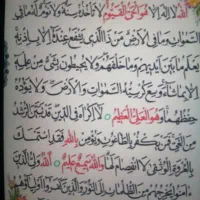 الله لا اله الا هو الحي القيوم لا تاخذه سنة ولا نوم له ما في
السموات وما في الارض من ذا الذي يشفع عنده الا باذنه
يعلم ما بين ايديهم وما خلفهم ولا يحيطون بشيء من علمه
الا بما شاء وسع كرسيه السموات والارض ولا يؤده
حفظهما وهو العلي العظيم لا اكراه في الدين قد تبين الرشد
من الغي فمن يكفر بالطاغوت ويؤمن بالله فقد استمسك
بالعروة الوثقى لا انفصام لها والله سميع عليم الله ولي الذين
امنوا يخرجهم من الظلمات الى النور والذين كفروا اولياؤهم